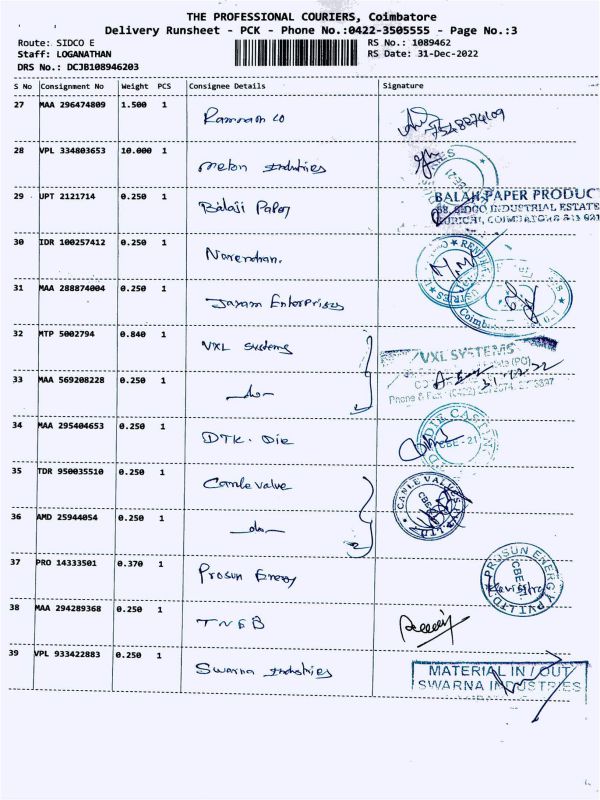 THE PROFESSIONAL COURIERS, Coimbatore
Delivery Runsheet - PCK - Phone No.:0422-3505555 - Page No.:3
Route: SIDCO E RS No.: 1089462
Staff: LOGANATHAN RS Date: 31-Dec-2022
DRS No.: DCJB108946203
S No Consignment No Weight PCS Consignee Details Signature
27 MAA 296474809 1.500 1
7548874109
28 VPL 334803653 10.000 1 Melon Industries
29 UPT 2121714 0.250 1 Balaji Paper
BALAJI PAPER PRODUC
SIDCO INDUSTRIAL ESTATE
30 IDR 100257412 0.250 1 Narendran.
31 MAA 288874004 0.250 1 Jayam Enterprises
Coimb
32 MTP 5002794 0.840 1 VXL Systems
VXL SYSTEMS
33 MAA 569208228 0.250 1 -do-
Phone & Fax
34 MAA 295404653 0.250 1 DTK. Die
DIE CAST
CBE - 21
35 TDR 950035510 0.250 1 Canle valve
CANLE VALVES PVT LTD
CBE
36 AMD 25944054 0.250 1 -do-
37 PRO 14333501 0.370 1 Prosun Energy
PROSUN ENERGY PVT LTD
CBE
38 MAA 294289368 0.250 1 TNEB
39 VPL 933422883 0.250 1 Swarna Industries
MATERIAL IN / OUT
SWARNA INDUSTRIES